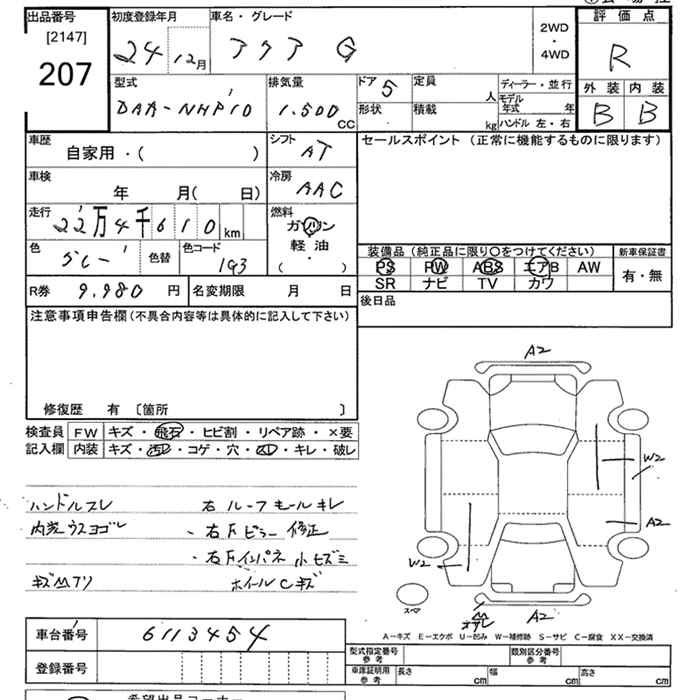 出品番号 初度登録年月 車名・グレード 評価点
[2147] 2WD
24 12月 アクア G ・ R
207 4WD
型式 排気量 ドア 5 定員 人 ディーラー・並行 外装 内装
DAA-NHP10 1.500 CC 形状 積載 kg モデル年式 年 B B
ハンドル 左・右
車歴 シフト セールスポイント (正常に機能するものに限ります)
自家用・( ) AT
車検 冷房
年 月( 日) AAC
走行 燃料
22万4千610 km ガソリン
色 色替 色コード 軽油
グレー 1G3 ・
( )
装備品(純正品に限り○をつけてください) 新車保証書
PS PW ABS エアB AW 有・無
SR ナビ TV カワ
R券 9.980 円 名変期限 月 日 後日品
注意事項申告欄(不具合内容等は具体的に記入して下さい)
修復歴 有 〔箇所 〕
検査員 FW キズ・飛石・ヒビ割・リペア跡・×要
記入欄 内装 キズ・汚レ・コゲ・穴・スレ・キレ・破レ
ハンドルスレ 右ルーフモールキレ
内装ウスヨゴレ ・右Fピラー修正
・右Fインパネ小ヒズミ
キズ凹アリ ホイールCキズ
A2
W2
A2
W2
スペア
A2
A-キズ E-エクボ U-凹み W-補修跡 S-サビ C-腐食 XX-交換済
車台番号 6113454
登録番号
型式指定番号 参考 類別区分番号 参考
車庫証明用 参考 長さ cm 幅 cm 高さ cm
希望出品コーナー